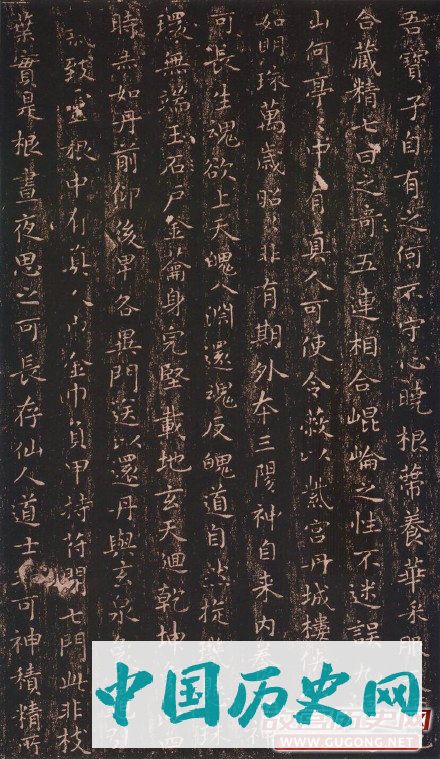 吾實子自有之何不守心曉根蔕養華采服
合藏精七日之奇五連相合崐崘之性不迷誤九
山何亭亭中有真人可使令蔽以紫宮丹城樓俠
如明珠萬歲昭昭非有期外本三陽神自来内養神
可長生魂欲上天魄入淵還魂反魄道自然旋璣珠
環無端玉石戶金蘥身完堅載地玄天迴乾坤四
時赤如丹前仰後卑各異門送以還丹與玄泉引
氣致靈根中有真人巾金巾負甲持苻開七門此非枝
葉實是根晝夜思之可長存仙人道士非可神積精所
中国历史网
WWW.GUGONG.NET